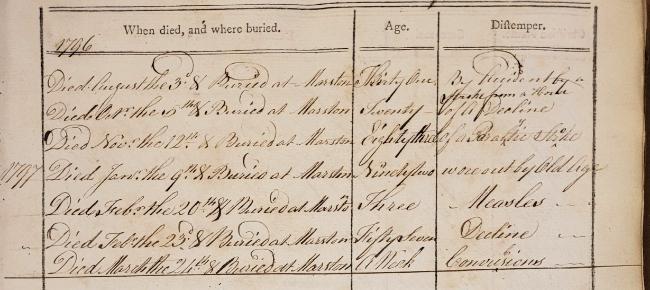 When died, and where buried. Age. Distemper.
1796
Died August the 3d & Buried at Marston Thirty One By Accident by a
Stroke from a Horse
Died Octr. the 5th & Buried at Marston Twenty - of a Decline
Died Novr. the 12th & Buried at Marston Eighty three of a Paralitic Stroke
1797 Died Janr. the 9th & Buried at Marston Ninety two wore out by Old Age
Died Febr. the 20th & Buried at Marston Three Measles
Died Febr. the 23d & Buried at Marston Fifty Seven Decline
Died March the 24th & Buried at Marston A Week Convulsions